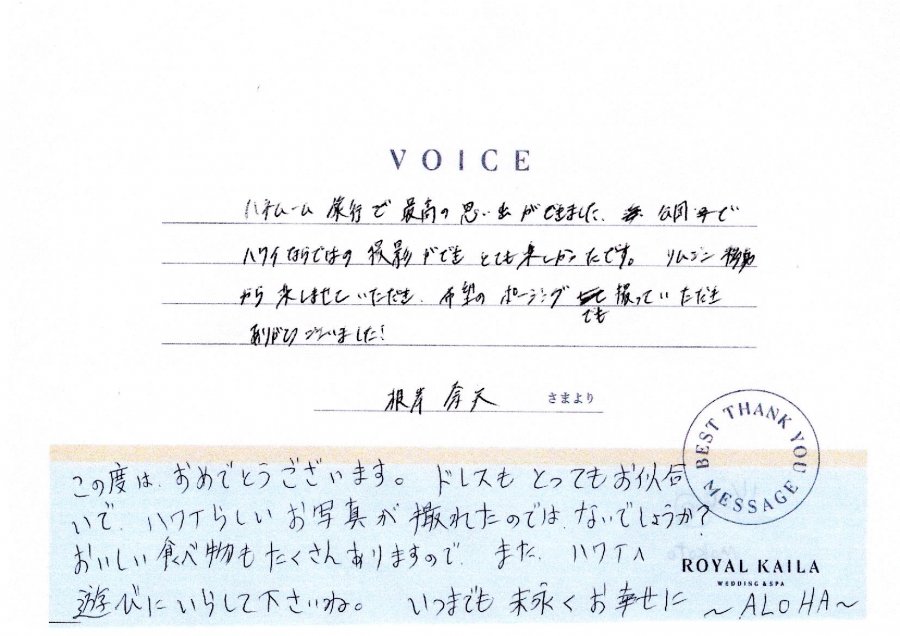 VOICE
ハネムーム 旅行で 最高の思い出ができました、公園で
ハワイならではの 撮影ができ とても楽しかったです。 リムジン 移動
から 楽しませていただき、希望の ポージング でも 撮っていただき
ありがとうございました!
根岸 さまより
BEST THANK YOU MESSAGE
この度は、おめでとうございます。 ドレスも とってもお似合
いで、ハワイらしい お写真が 撮れたのでは、ないでしょうか?
おいしい 食べ物も たくさんありますので、また、ハワイへ
遊びに いらして下さいね。 いつまでも 末永く お幸せに
ROYAL KAILA
WEDDING & SPA
~ALOHA~